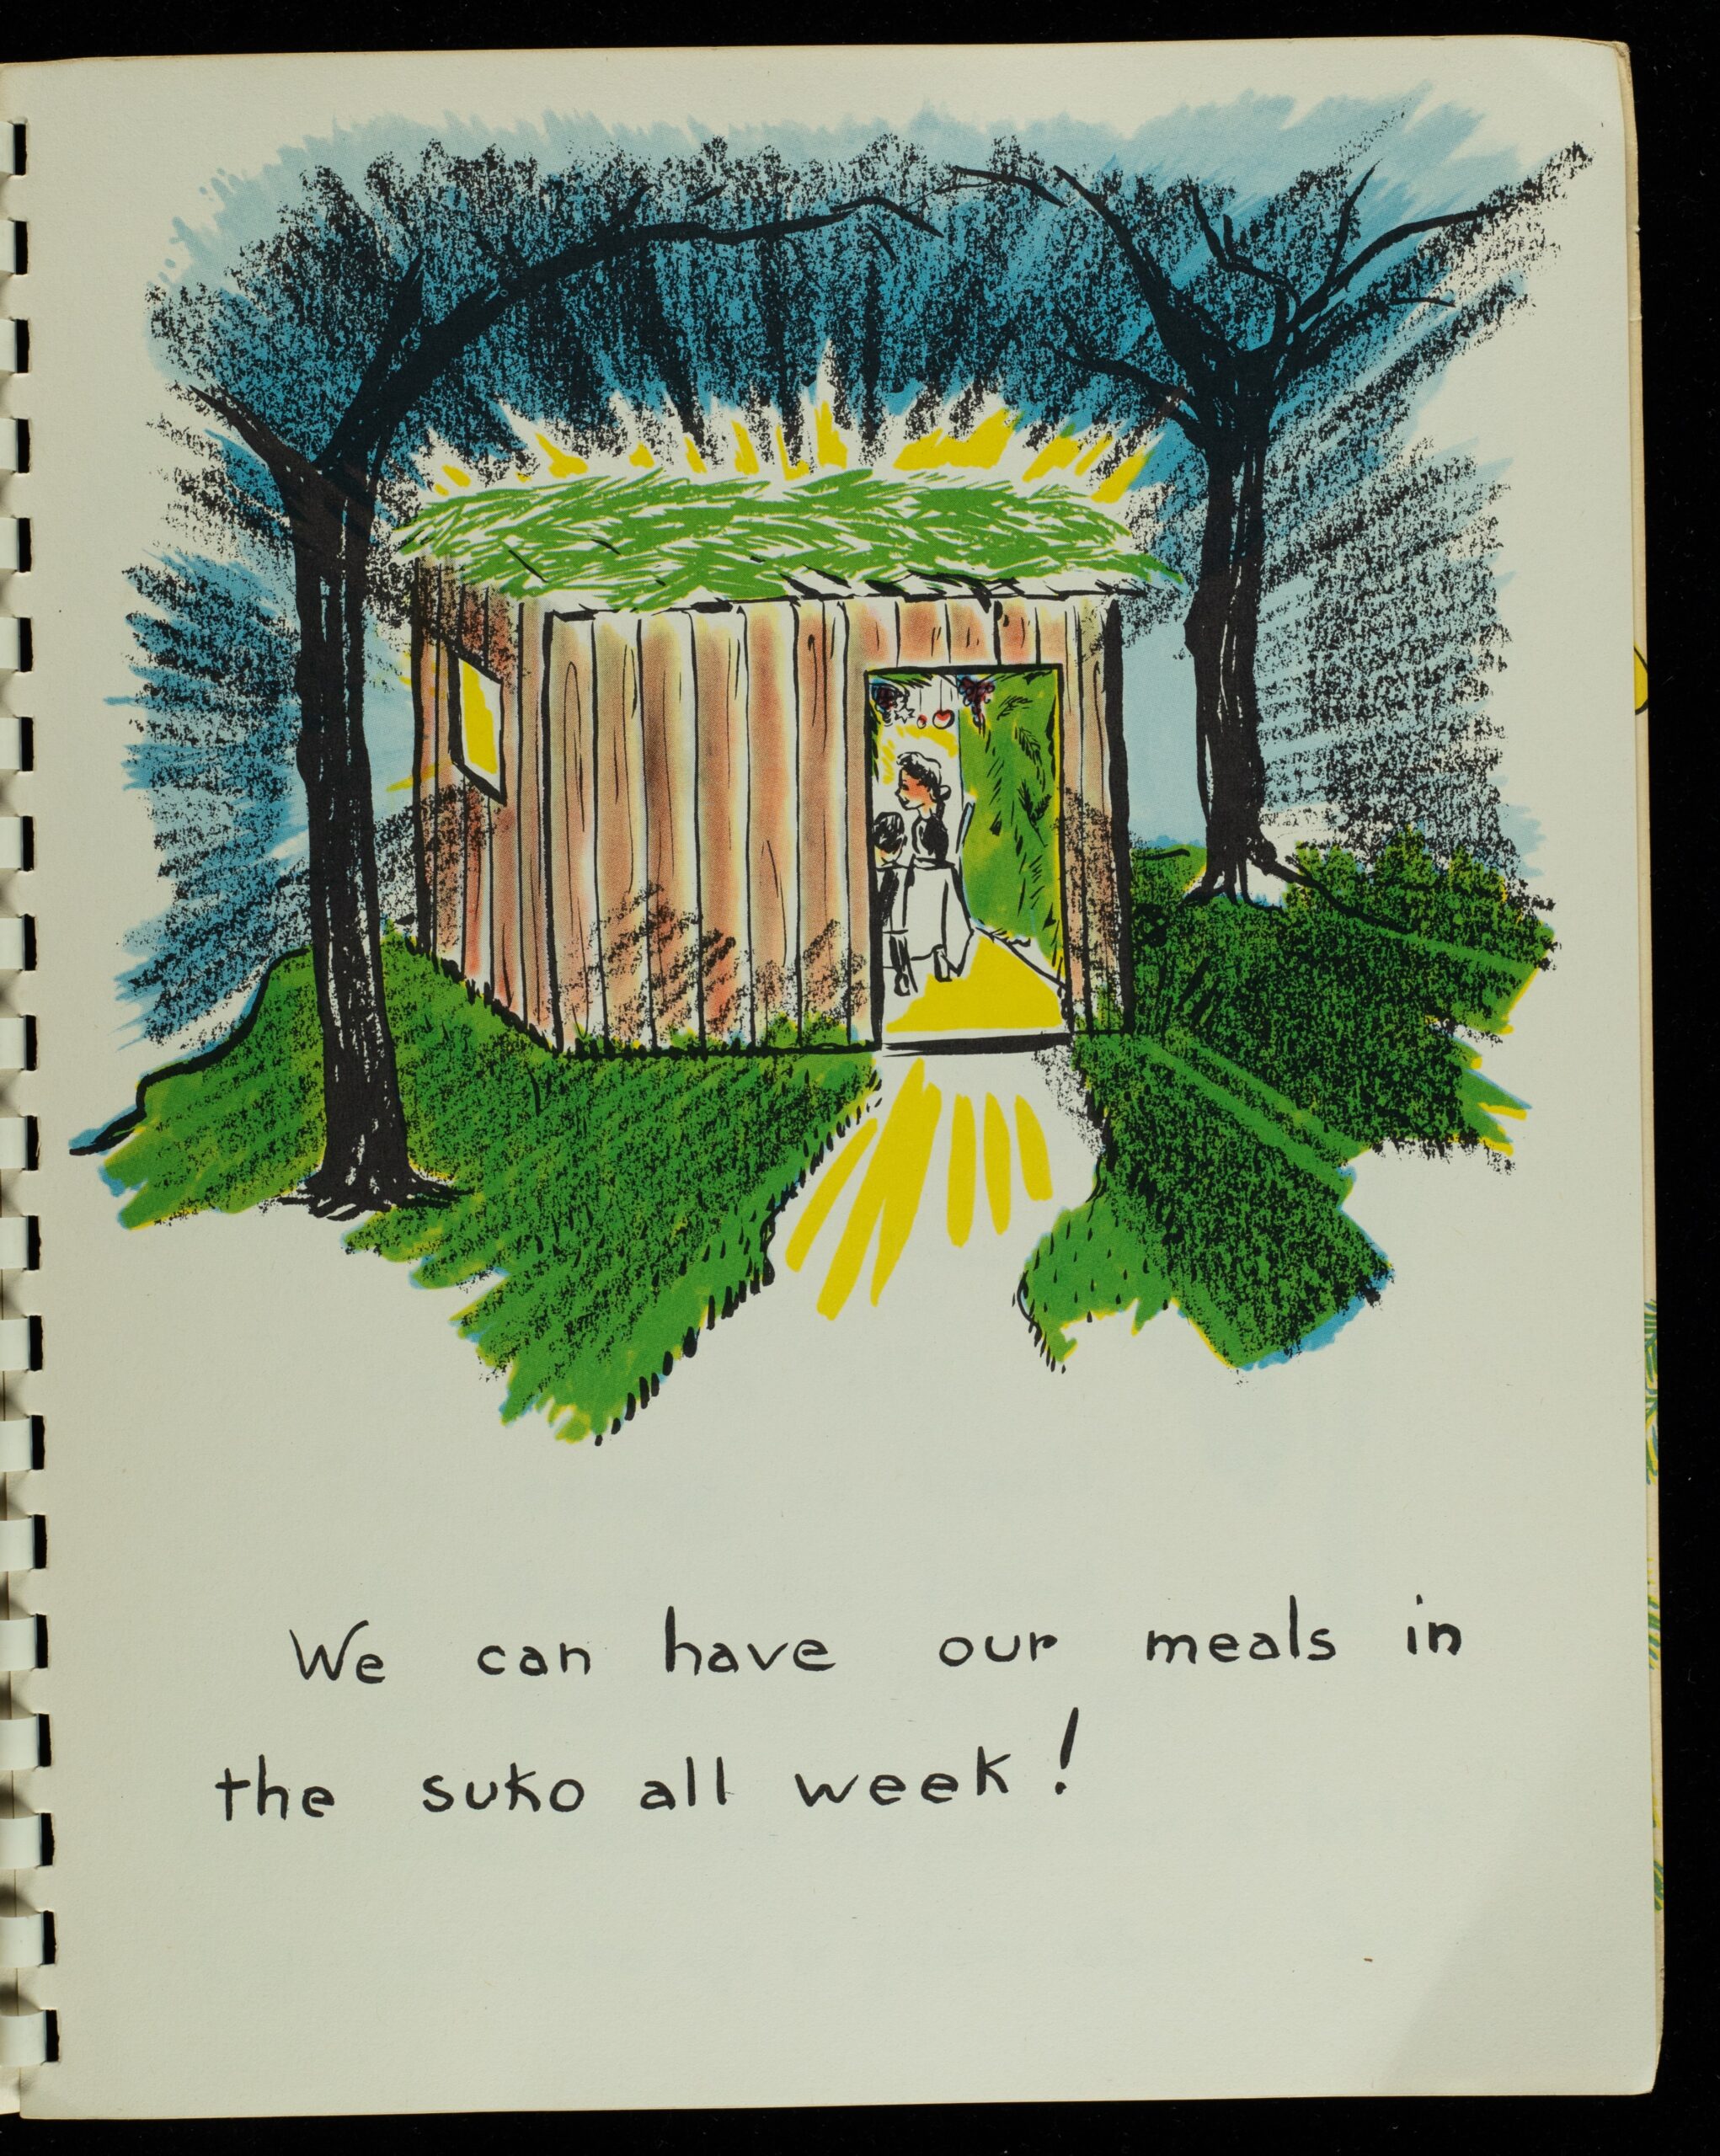 We can have our meals in
the suko all week!